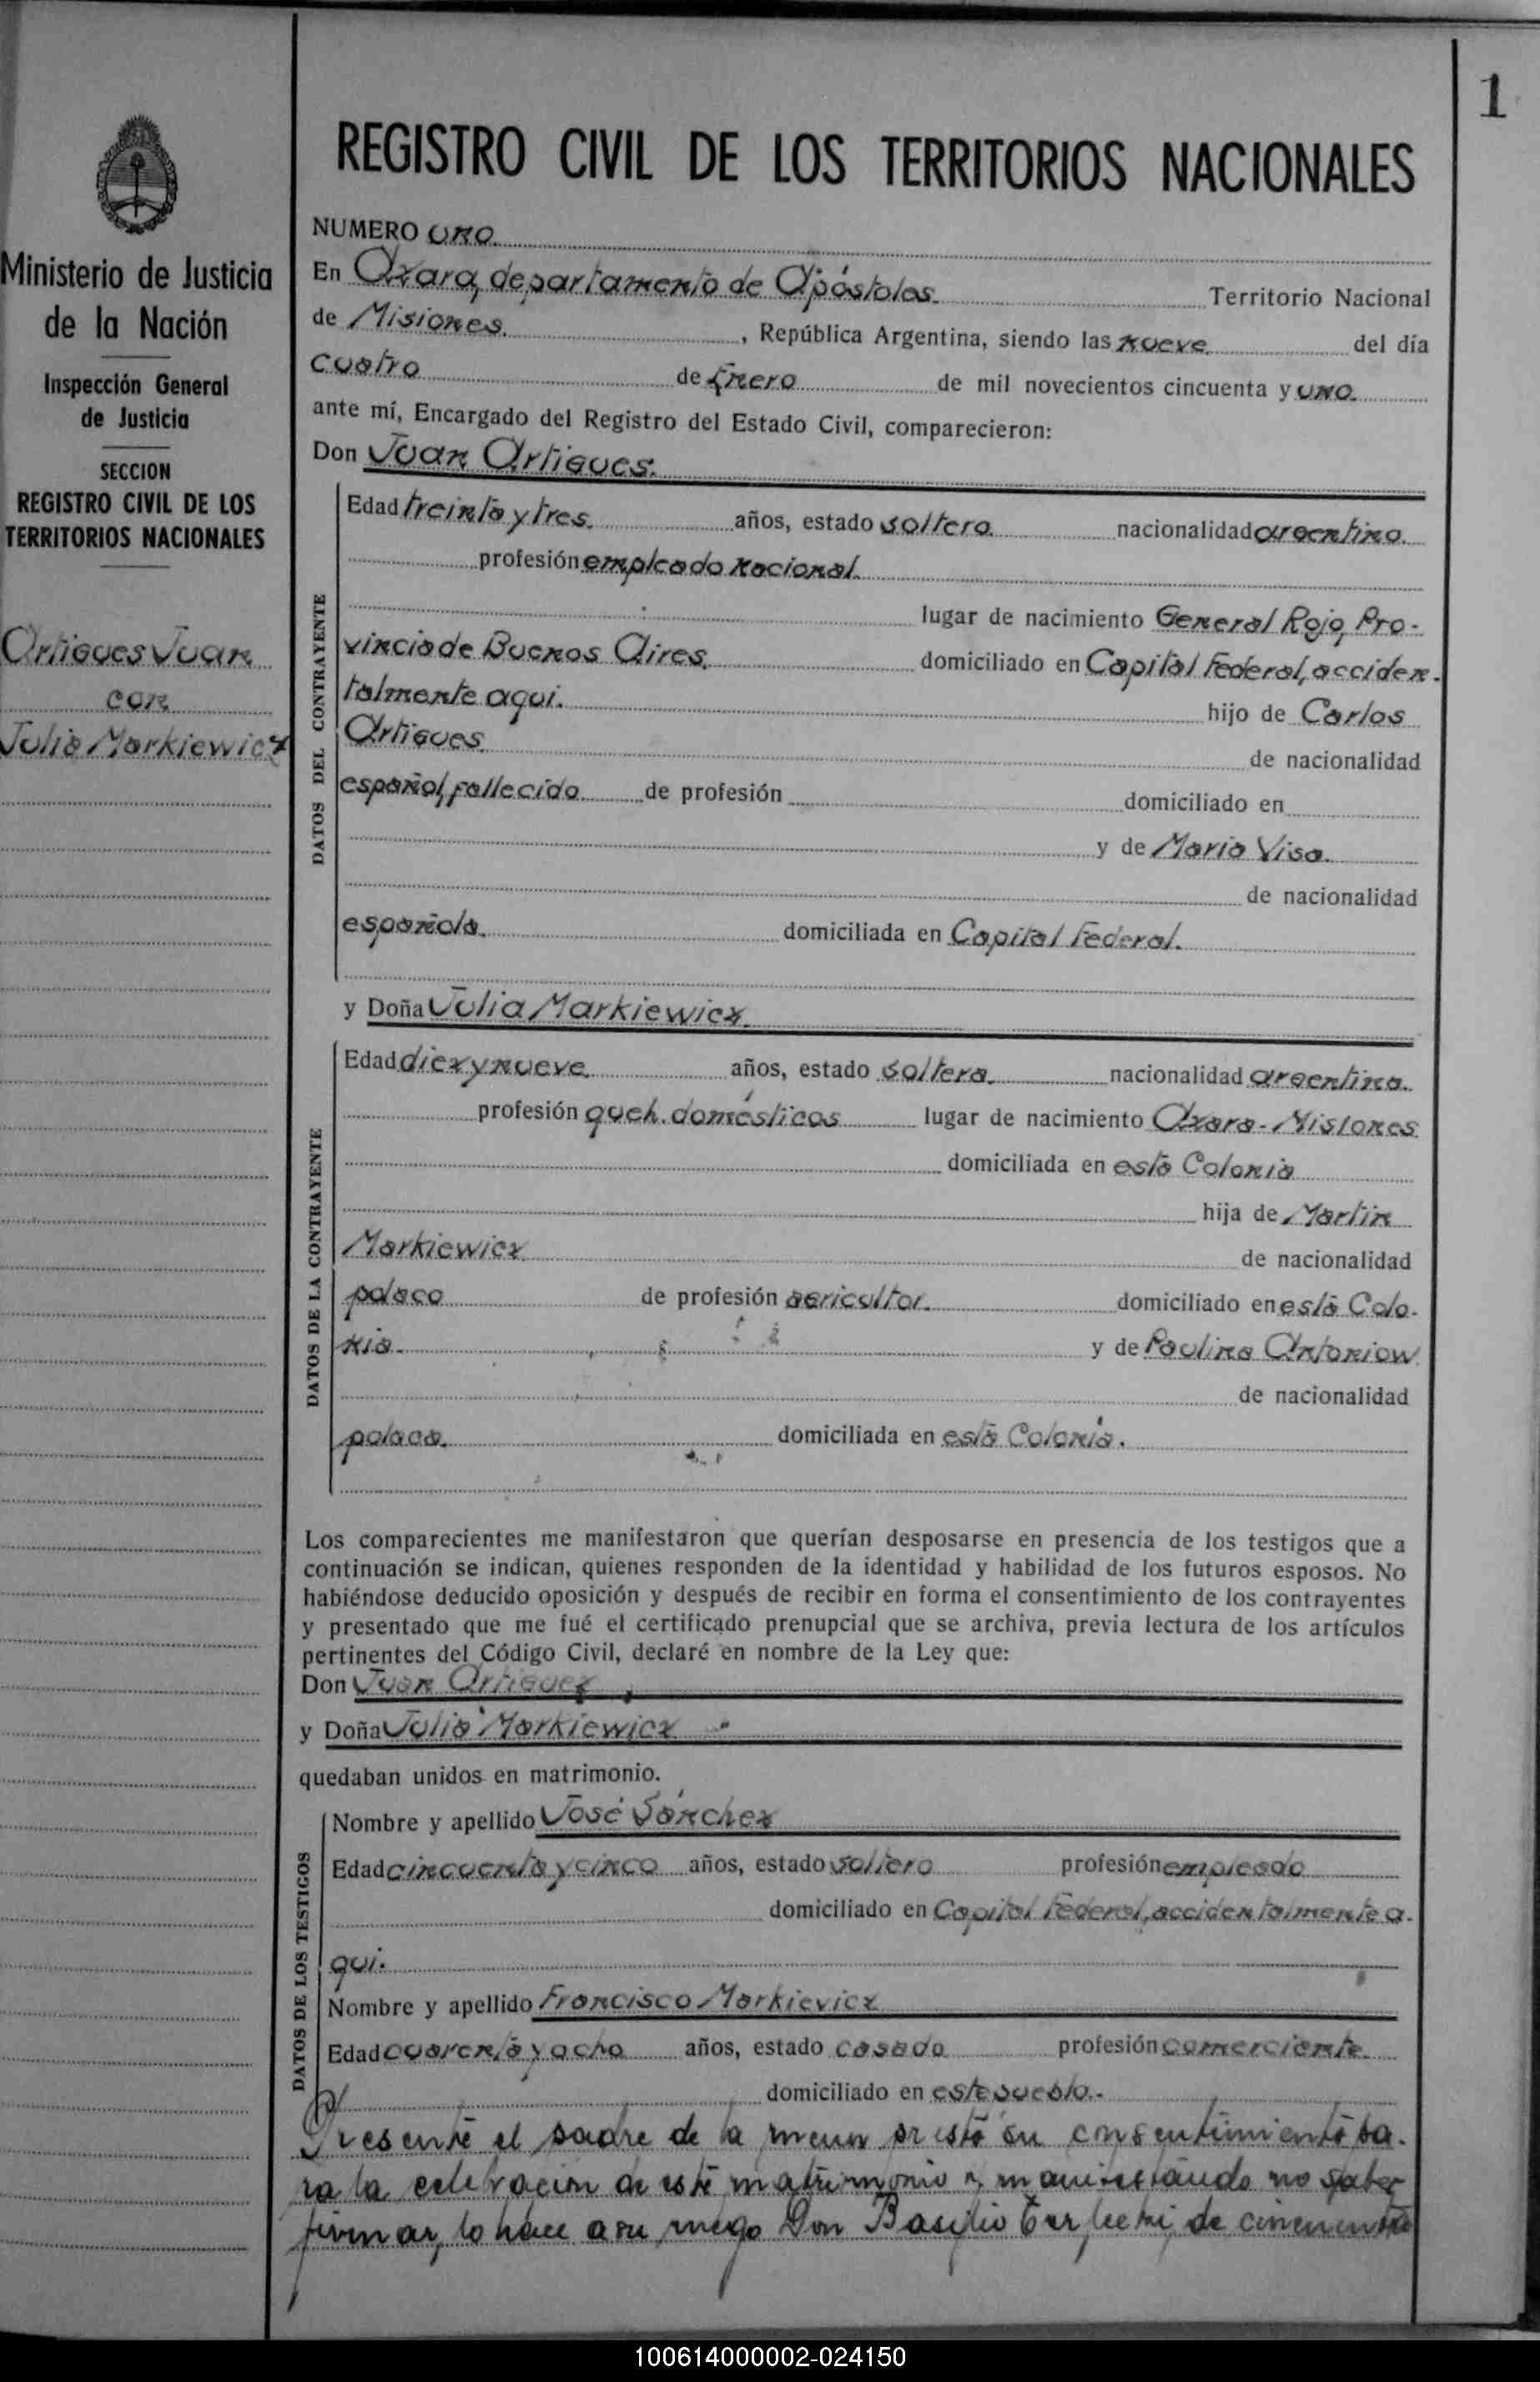 1
REGISTRO CIVIL DE LOS TERRITORIOS NACIONALES
Ministerio de Justicia
de la Nación
Inspección General
de Justicia
SECCION
REGISTRO CIVIL DE LOS
TERRITORIOS NACIONALES
Artigues Juan
con
Julia Markiewicz
NUMERO uno
En Azara, departamento de Apóstoles. Territorio Nacional
de Misiones. , República Argentina, siendo las nueve del día
cuatro de Enero de mil novecientos cincuenta y uno.
ante mí, Encargado del Registro del Estado Civil, comparecieron:
Don Juan Artigues.
DATOS DEL CONTRAYENTE
Edad treinta y tres. años, estado soltero. nacionalidad argentino.
profesión empleado nacional.
lugar de nacimiento General Rojo, Pro-
vincia de Buenos Aires. domiciliado en Capital Federal, acciden-
talmente aquí. hijo de Carlos
Artigues. de nacionalidad
español, fallecido de profesión domiciliado en
y de Maria Visa.
de nacionalidad
española. domiciliada en Capital Federal.
y Doña Julia Markiewicz.
DATOS DE LA CONTRAYENTE
Edad diez y nueve años, estado soltera. nacionalidad argentina.
profesión queh. domésticos lugar de nacimiento Azara-Misiones
domiciliada en esta Colonia
hija de Martín
Markiewicz de nacionalidad
polaco de profesión agricultor. domiciliado en esta Colo-
nia. y de Paulina Antoniow
de nacionalidad
polaca. domiciliada en esta Colonia.
Los comparecientes me manifestaron que querían desposarse en presencia de los testigos que a
continuación se indican, quienes responden de la identidad y habilidad de los futuros esposos. No
habiéndose deducido oposición y después de recibir en forma el consentimiento de los contrayentes
y presentado que me fué el certificado prenupcial que se archiva, previa lectura de los artículos
pertinentes del Código Civil, declaré en nombre de la Ley que:
Don Juan Artigues
y Doña Julia Markiewicz
quedaban unidos en matrimonio.
DATOS DE LOS TESTIGOS
Nombre y apellido José Sánchez
Edad cincuenta y cinco años, estado soltero profesión empleado
domiciliado en Capital Federal, accidentalmente a-
quí.
Nombre y apellido Francisco Markievicz
Edad cuarenta y ocho años, estado casado profesión comerciante.
domiciliado en este pueblo.-
Presente el padre de la menor prestó su consentimiento pa-
ra la celebración de este matrimonio y manifestando no saber
firmar, lo hace a su ruego Don Basilio de cincuenta
100614000002-024150